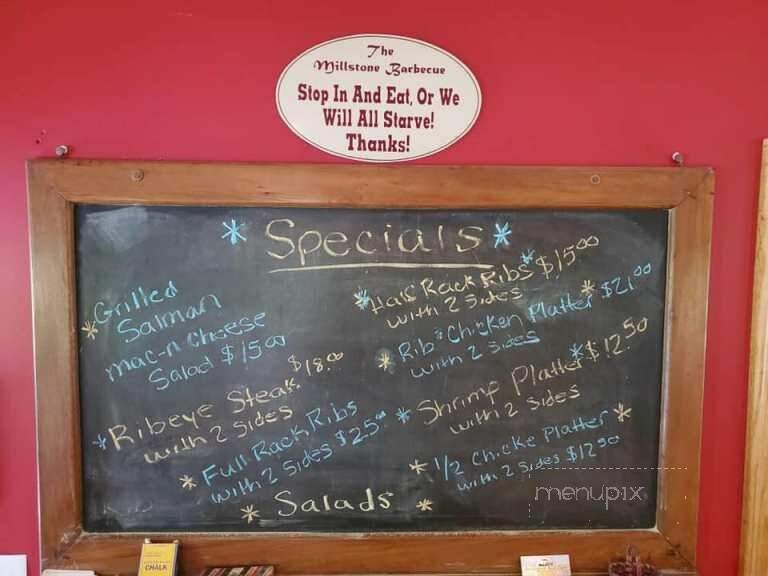 The
Millstone Barbecue
Stop In And Eat, Or We
Will All Starve!
Thanks!
Specials
Grilled
Salmon
mac-n cheese
Salad $15.00
Ribeye Steak $18.00
with 2 sides
Full Rack Ribs
with 2 sides $25.00
Salads
Half Rack Ribs $15.00
with 2 sides
Rib & Chicken Platter $21.00
with 2 sides
Shrimp Platter $12.50
with 2 sides
1/2 Chicke Platter
with 2 sides $12.90
menupix
CHALK